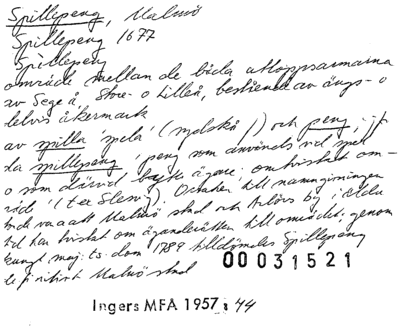 Spillepeng, Malmö
Spillepeng 1677
Spillepeng
område mellan de båda utloppsarmarna
av Sege å, Store- o Lilleå, bestående av ängs- o
delvis åkermark
av spilla 'spela' (nyda) och peng; jf
da spillepeng 'peng som används vid spel
o som därvid byter ägare; omtvistat om-
råde' (ter Slevig). Orsaken till namngivningen
torde vara att Malmö stad och Arlövs by i äldre
tid har tvistat om äganderätten till området; genom
kungl. maj:ts dom 1789 tilldömdes Spillepeng
Malmö stad
00031521
Ingers MFA 1957 s 44